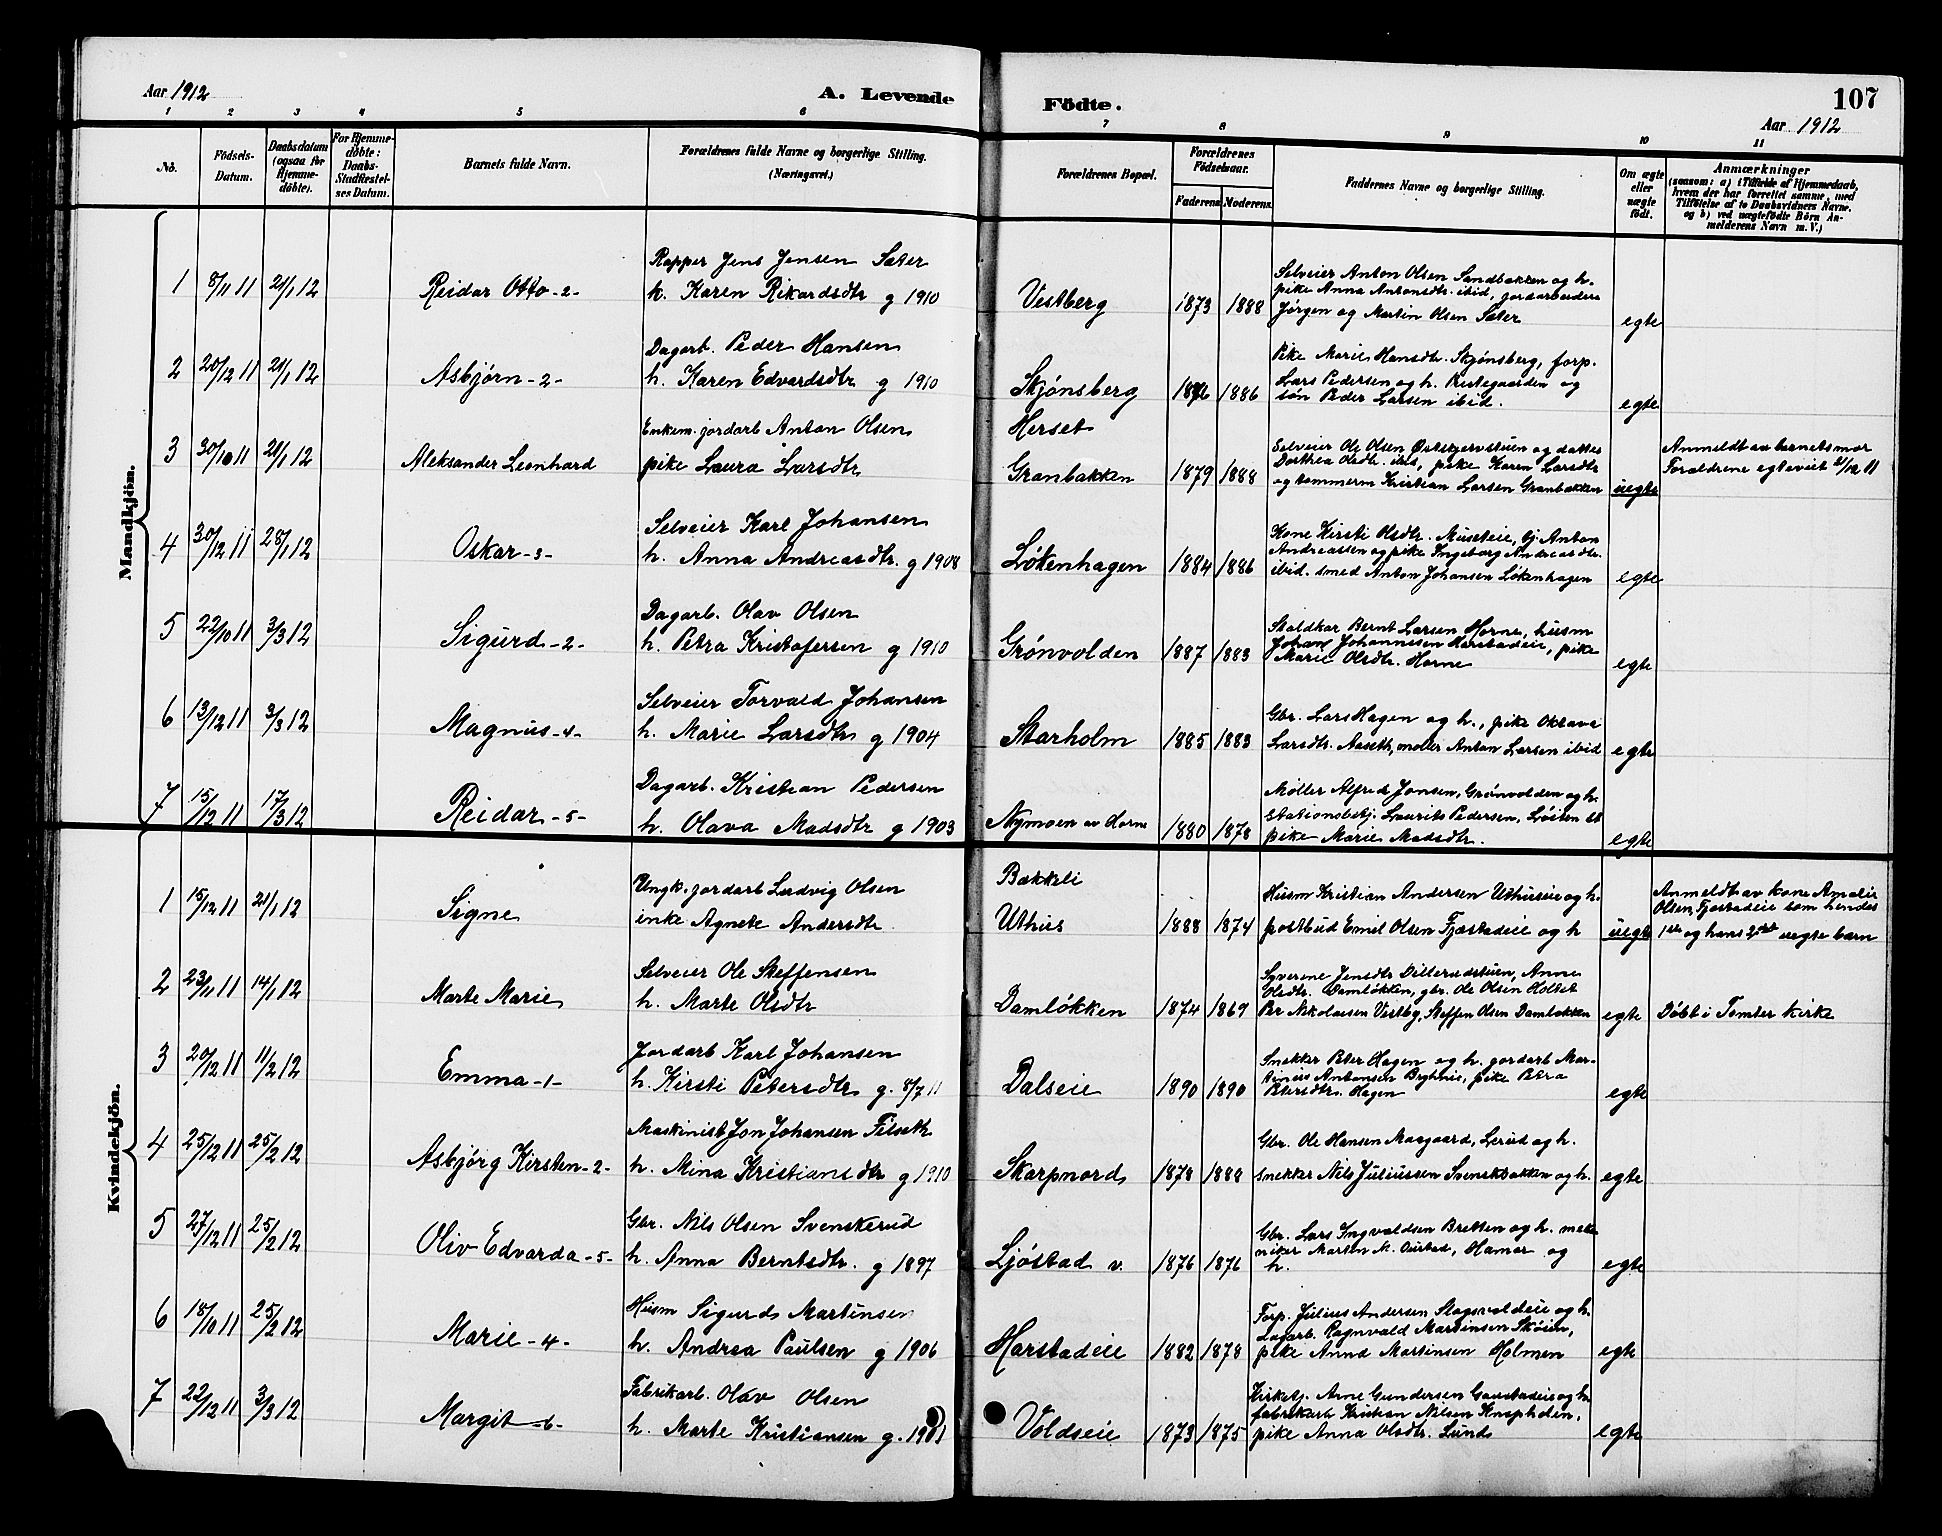 Aar 1912
A. Levende Födte.
107
Aar 1912
1 2 3 4 5 6 7 8 9 10 11
No.
Födsels-Datum.
Daabsdatum (ogsaa for Hjemme-döbte).
For Hjemme-döbte: Daabs-Stadfæstel-ses Datum.
Barnets fulde Navn.
Forældrenes fulde Navne og borgerlige Stilling.
(Næringsvei.)
Forældrenes Bopæl.
Forældrenes Födselsaar.
Faderens Moderens.
Faddernes Navne og borgerlige Stilling.
Om ægte eller uægte födt.
Anmærkninger
(saasom: a) i Tilfælde af Hjemmedaab,
hvem der har forrettet samme, med
Tilföielse af to Daabsvidners Navne.
og b) ved uægtefödte Börn An-
melderens Navn m. V.)
Mandkjön.
1 8/11 11 21/1 12 Reidar Otto -2-
Rapper Jens Jensen Sæter
h. Karen Rikardsdtr g 1910
Vestberg 1873 1888
Selveier Anton Olsen Sandbakken og h.
pike Anna Antonsdtr. ibid, jordarbeidere
Jørgen og Martin Olsen Sæter
egte
2 20/12 11 21/1 12 Asbjørn -2-
Dagarb. Peder Hansen
h. Karen Edvardsdtr g 1910
Skjønsberg 1886
Pike Marie Hansdtr. Skjønsberg, forp.
Lars Pedersen og h. Prestegaarden og
søn Peder Larsen ibid.
egte
3 30/10 11 21/1 12 Aleksander Leonhard
Enkem. jordarb Anton Olsen
pike Laura Larsdtr
Herset
Granbakken 1879 1888
Selveier Ole Olsen Østskjervstuen og datter
Dorthea Olsdtr. ibid, pike Karen Larsdtr
og tømmerm Kristian Larsen Granbakken
uegte
Anmeldt av barnets mor
Forældrene egteviet 21/12 11
4 30/12 11 28/1 12 Oskar -3-
Selveier Karl Johansen
h. Anna Andreasdtr. g 1908
Løkenhagen 1884 1886
Kone Kirsti Olsdtr. Museteie, tj. Anton
Andreassen og pike Ingeborg Andreasdtr.
ibid. smed Anton Johansen Løkenhagen
egte
5 22/10 11 3/3 12 Sigurd -2-
Dagarb. Olav Olsen
h. Petra Kristofersen g 1910
Grønvolden 1887 1883
Staldkar Bernt Larsen Horne, husm
Johan Johannesen Harstadeie, pike
Marie Olsdtr. Horne
egte
6 13/12 11 3/3 12 Magnus -4-
Selveier Torvald Johansen
h. Marie Larsdtr g 1904
Starholm 1885 1883
Gbr. Lars Hagen og h., pike Oktava
Larsdtr. Aaseth, møller Anton Larsen ibid
egte
7 15/12 11 17/3 12 Reidar -5-
Dagarb. Kristian Pedersen
h. Olava Madsdtr g 1903
Nymoen av Horne 1880 1878
Møller Alfred Jonsen, Grønvolden og h.
Stationsbetj. Laurits Pedersen, Løiten St
pike Marie Madsdtr.
egte
Kvindekjön.
1 15/12 11 21/1 12 Signe
Ungk. jordarb Ludvig Olsen
inke Agnete Andersdtr
Bækkeli
Uthus 1888 1874
Husm Kristian Andersen Uthuseie og h.
postbud Emil Olsen Fjæstadeie og h
uegte
Anmeldt av kone Amalie
Olsen, Fjæstadeie som hendes
1ste og hans 2det uegte barn
2 23/11 11 14/1 12 Marte Marie
Selveier Ole Steffensen
h. Marte Olsdtr
Damløkken 1874 1869
Syverene Jensdtr Dillerudstuen, Anne
Olsdtr. Damløkken, gbr. Ole Olsen Holtet
Per Nikolaisen Vestby, Steffen Olsen Damløkken
egte
Døbt i Tomter kirke
3 20/12 11 11/2 12 Emma -1-
Jordarb Karl Johansen
h. Kirsti Petersdtr g. 8/7 11
Dalseie 1890 1890
Snekker Peter Hagen og h. jordarb Mar-
tinius Antonsen Bryhnie, pike Petra
Petersdtr. Hagen
egte
4 25/12 11 25/2 12 Asbjørg Kirsten -2-
Maskinist Jon Johansen Filseth
h. Mina Kristiansdtr g 1910
Skarpnord 1878 1888
Gbr. Ole Hansen Maagaard, Lerud og h.
snekker Nils Juliussen Svenskbakken og h.
egte
5 27/12 11 25/2 12 Oliv Edvarda -5-
Gbr. Nils Olsen Svenskerud
h. Anna Berntsdtr. g 1897
Ljøstad v. 1876 1876
Gbr. Lars Ingvaldsen Bretten og h. meka
niker Martin M. Ourstad, Hamar og
h.
egte
6 18/10 11 25/2 12 Marie -4-
Husm Sigurd Martinsen
h. Andrea Paulsen g 1906
Harstadeie 1882 1878
Forp. Julius Andersen Slagsvoldeie og h.
Lagarb. Ragnvald Martinsen Skøien,
pike Anna Martinsen Holmen
egte
7 22/12 11 3/3 12 Margit -6-
Fabrikarb. Olav Olsen
h. Marte Kristiansen g. 1901
Voldseie 1873 1875
Kirketj. Arne Gundersen Gaustadeie og h
fabrikarb Kristian Nilsen
pike Anna Olsdtr. Lund
egte